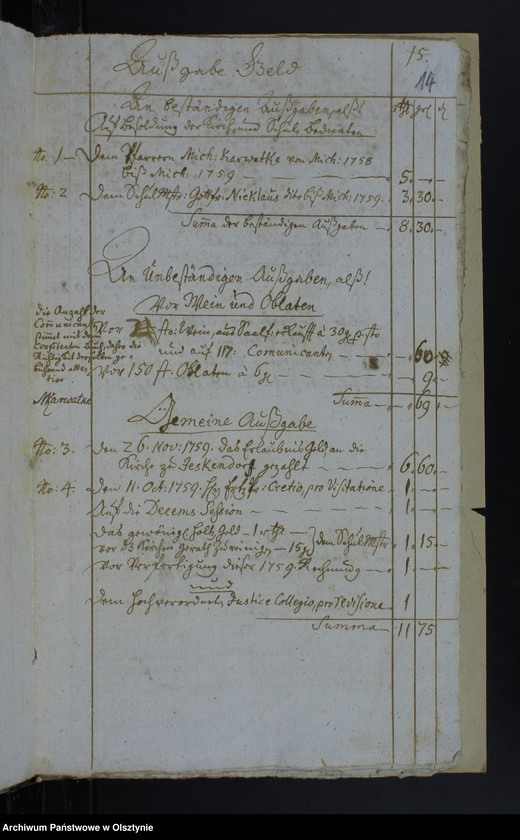 15.
14
Außgabe Geld
An beständigen Außgaben, alß!
Auf Besoldung der Kirch und Schul Bedienten
No: 1 — Dem Pfarrern Mich: Karwatke von Mich: 1758
biß Mich. 1759 — 5. — —
No: 2 Dem Schul Mstr: Gottfr: Nicklaus dito biß Mich: 1759. 3. 30. —
Summa der beständigen Außgaben — 8. 30. —
An Unbeständigen Außgaben, alß!
Vor Wein und Oblaten
die Anzahl der
Communicanten
stimmet mit dem
Vor Sto: Wein, aus Saalf: à 30 g p. sto
und auf 117: Communicanten — 60
Vor 150 st. Oblaten à 6 — 9. —
MKarwatke
Summa — 69 —
Gemeine Außgabe
No: 3. den 26. Nov: 1759. das Erlaubnis Geld an die
Kirche zu Jeskendorf gezahlt — 6. 60. —
No: 4. den 11. Oct: 1759. Cretio, pro Visitatione 1. — —
Auf die Decems Session — 1. — —
das gewönl. Holtz Geld — 1 rthl
vor d. Kirchen Geräth zu reinigen — 15 g dem Schul Mstr 1. 15. —
Vor Verfertigung dieser 1759. Rechnung — 1. —
und
dem Hochverordneten Justice Collegio, pro Revisione 1
Summa — 11 75
Archiwum Państwowe w Olsztynie